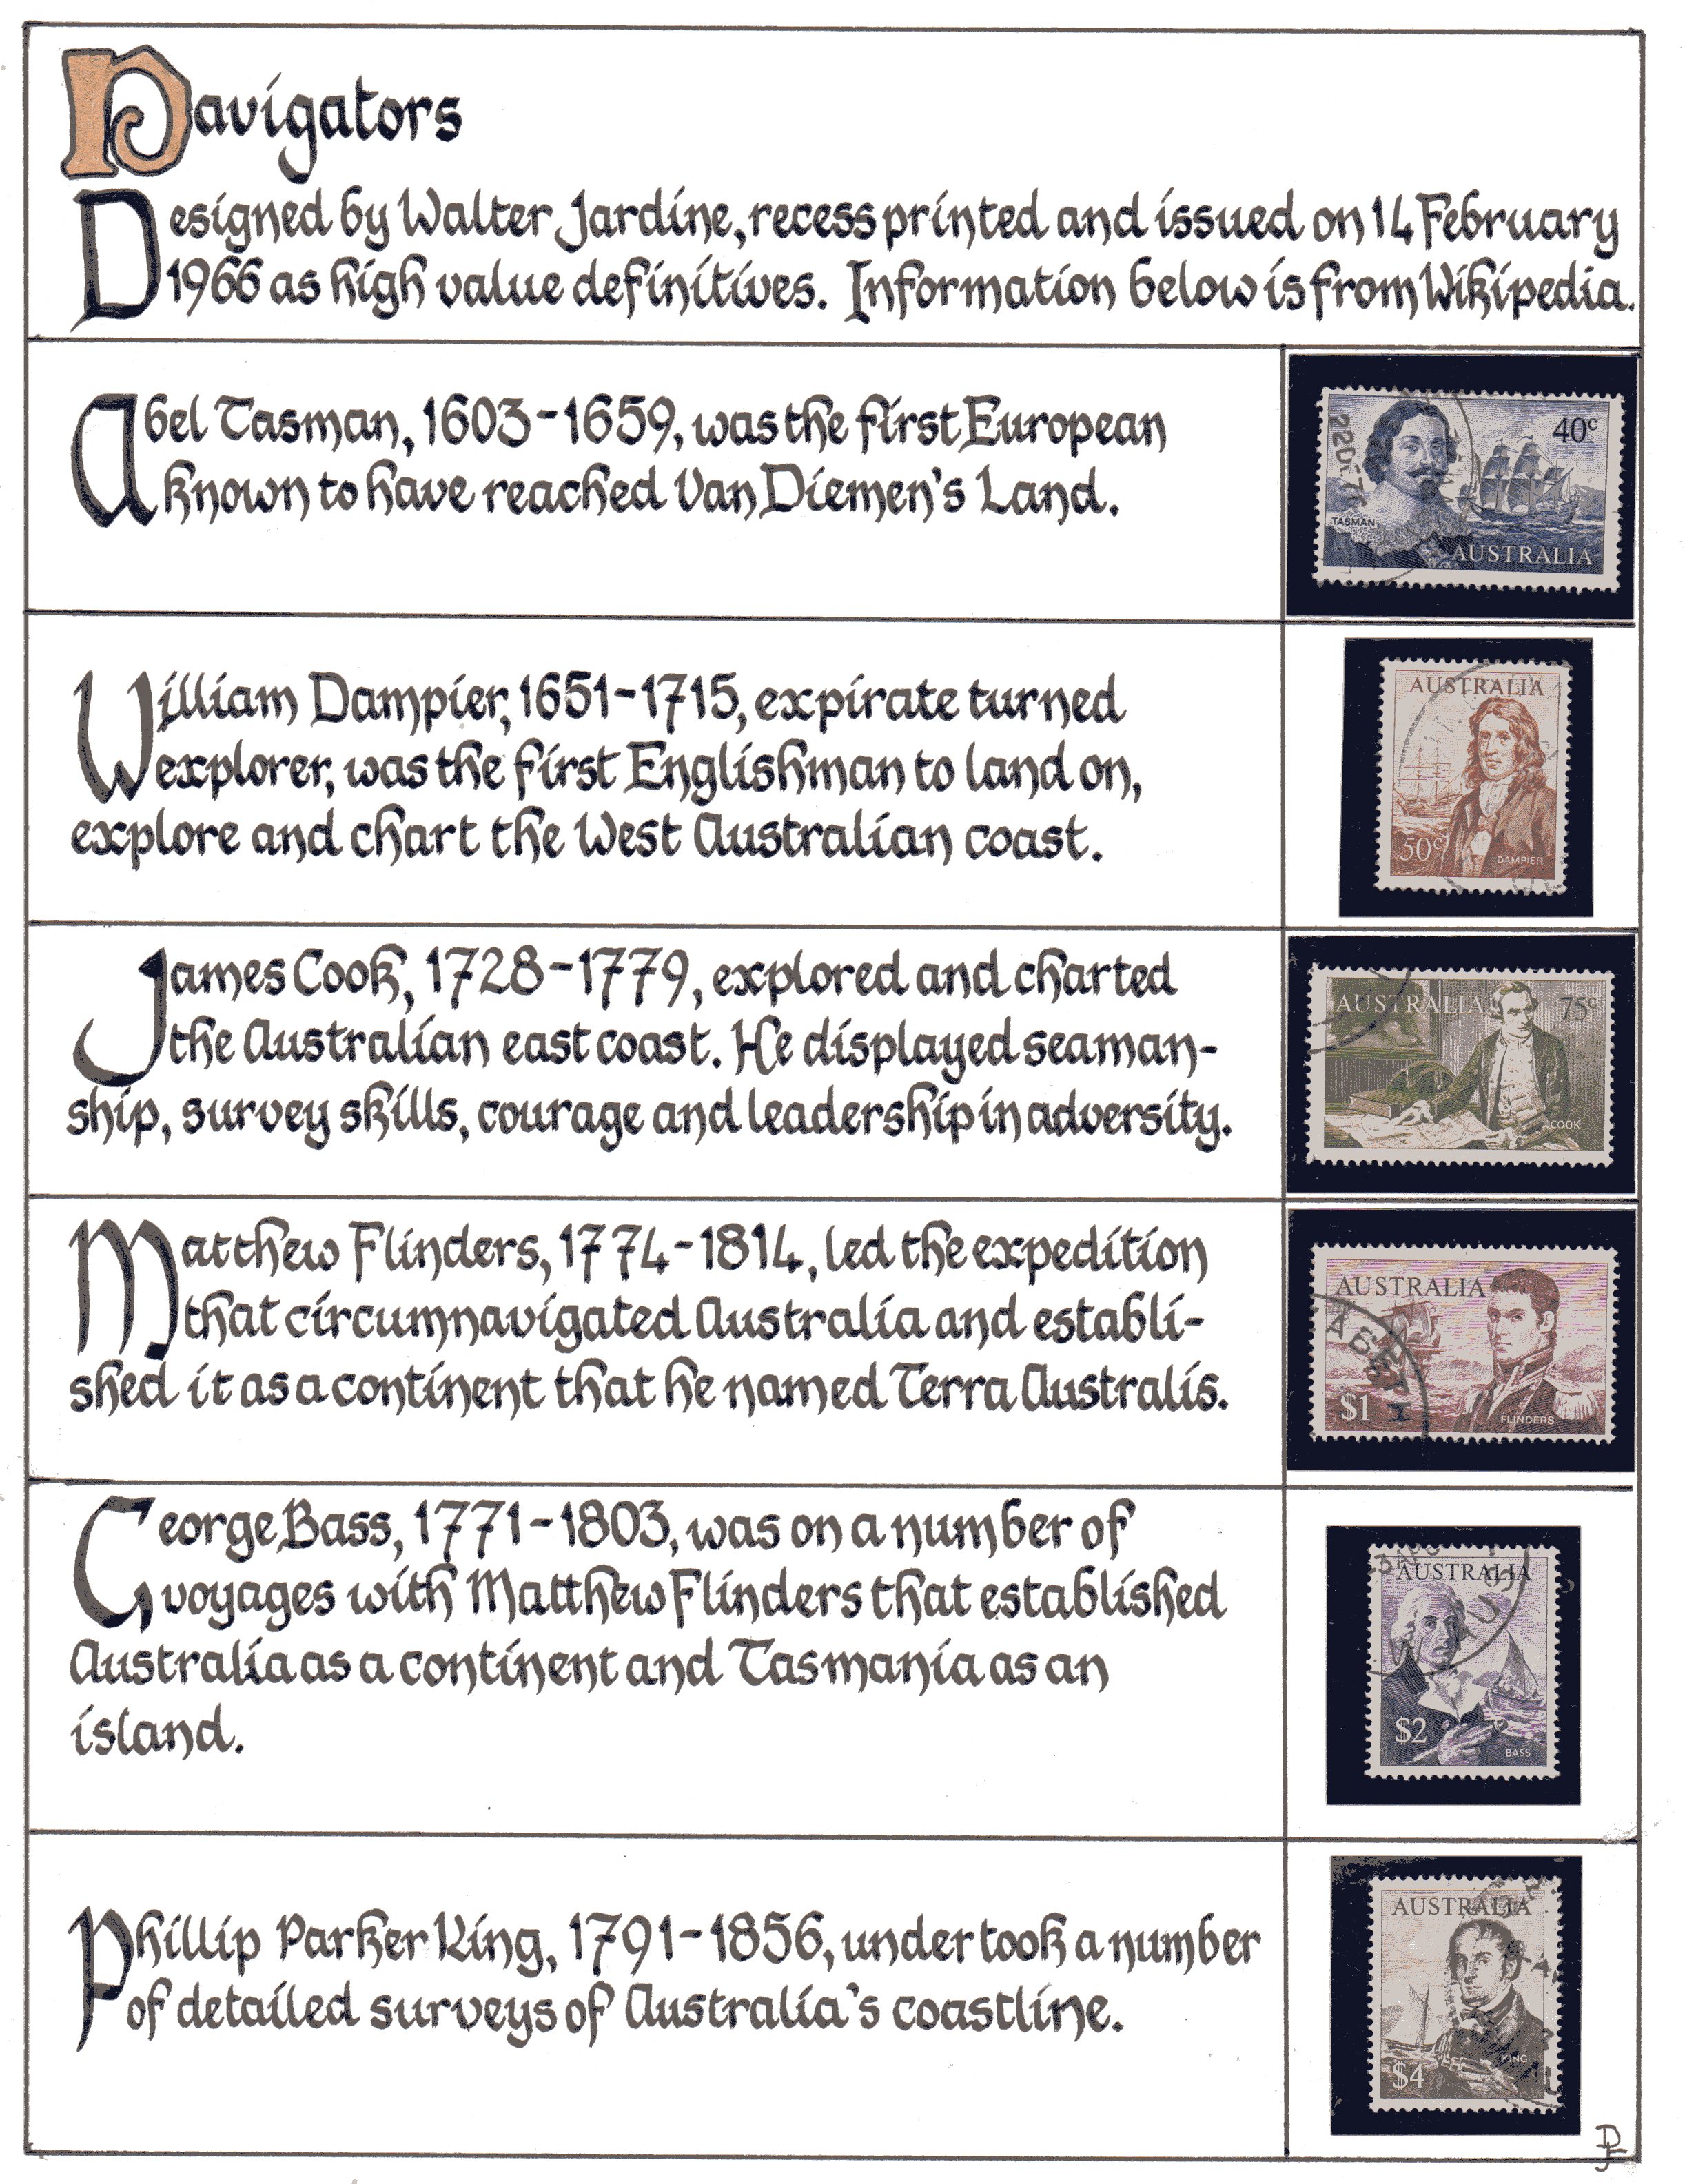 Navigators
Designed by Walter Jardine, recess printed and issued on 14 February
1966 as high value definitives. Information below is from Wikipedia.
Abel Tasman, 1603-1659, was the first European
known to have reached Van Diemen's Land.
40c
22DE76
TASMAN
AUSTRALIA
William Dampier, 1651-1715, expirate turned
explorer, was the first Englishman to land on,
explore and chart the West Australian coast.
AUSTRALIA
50c
DAMPIER
James Cook, 1728-1779, explored and charted
the Australian east coast. He displayed seaman-
ship, survey skills, courage and leadership in adversity.
AUSTRALIA 75c
COOK
Matthew Flinders, 1774-1814, led the expedition
that circumnavigated Australia and establi-
shed it as a continent that he named Terra Australis.
AUSTRALIA
$1
FLINDERS
George Bass, 1771-1803, was on a number of
voyages with Matthew Flinders that established
Australia as a continent and Tasmania as an
island.
AUSTRALIA
$2
BASS
Phillip Parker King, 1791-1856, undertook a number
of detailed surveys of Australia's coastline.
AUSTRALIA
KING
$4